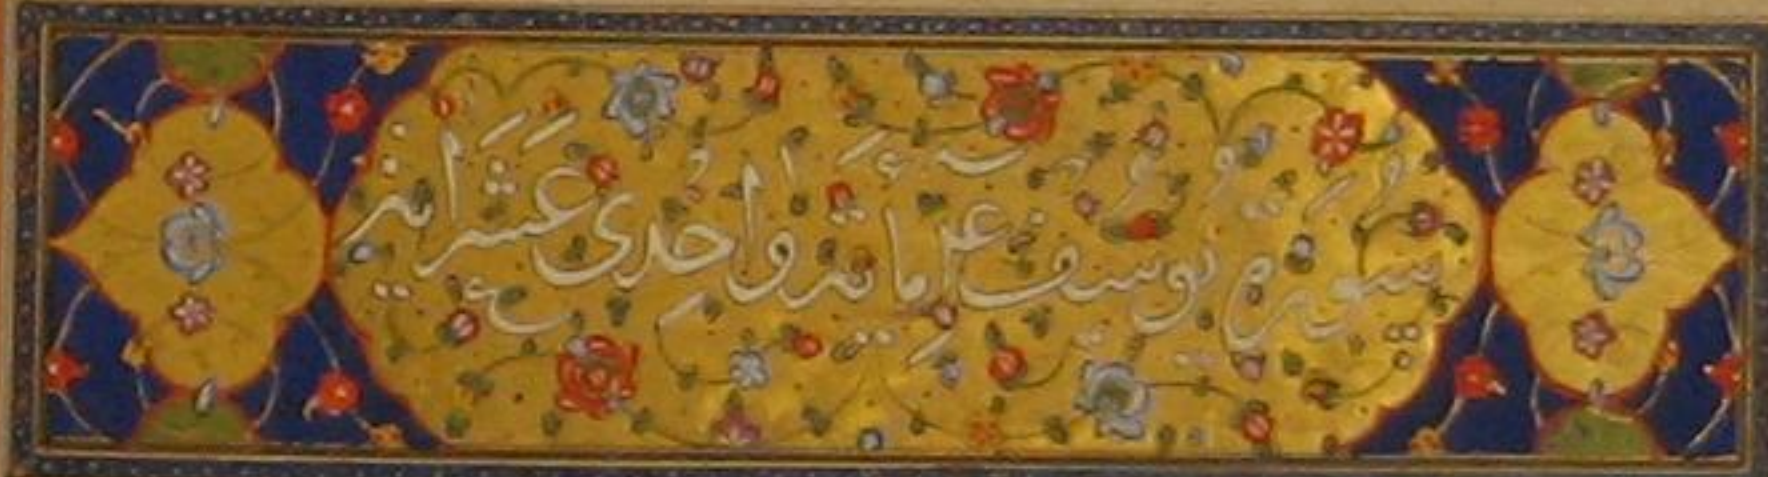 سورة يوسف عم ماية واحدى عشر اية